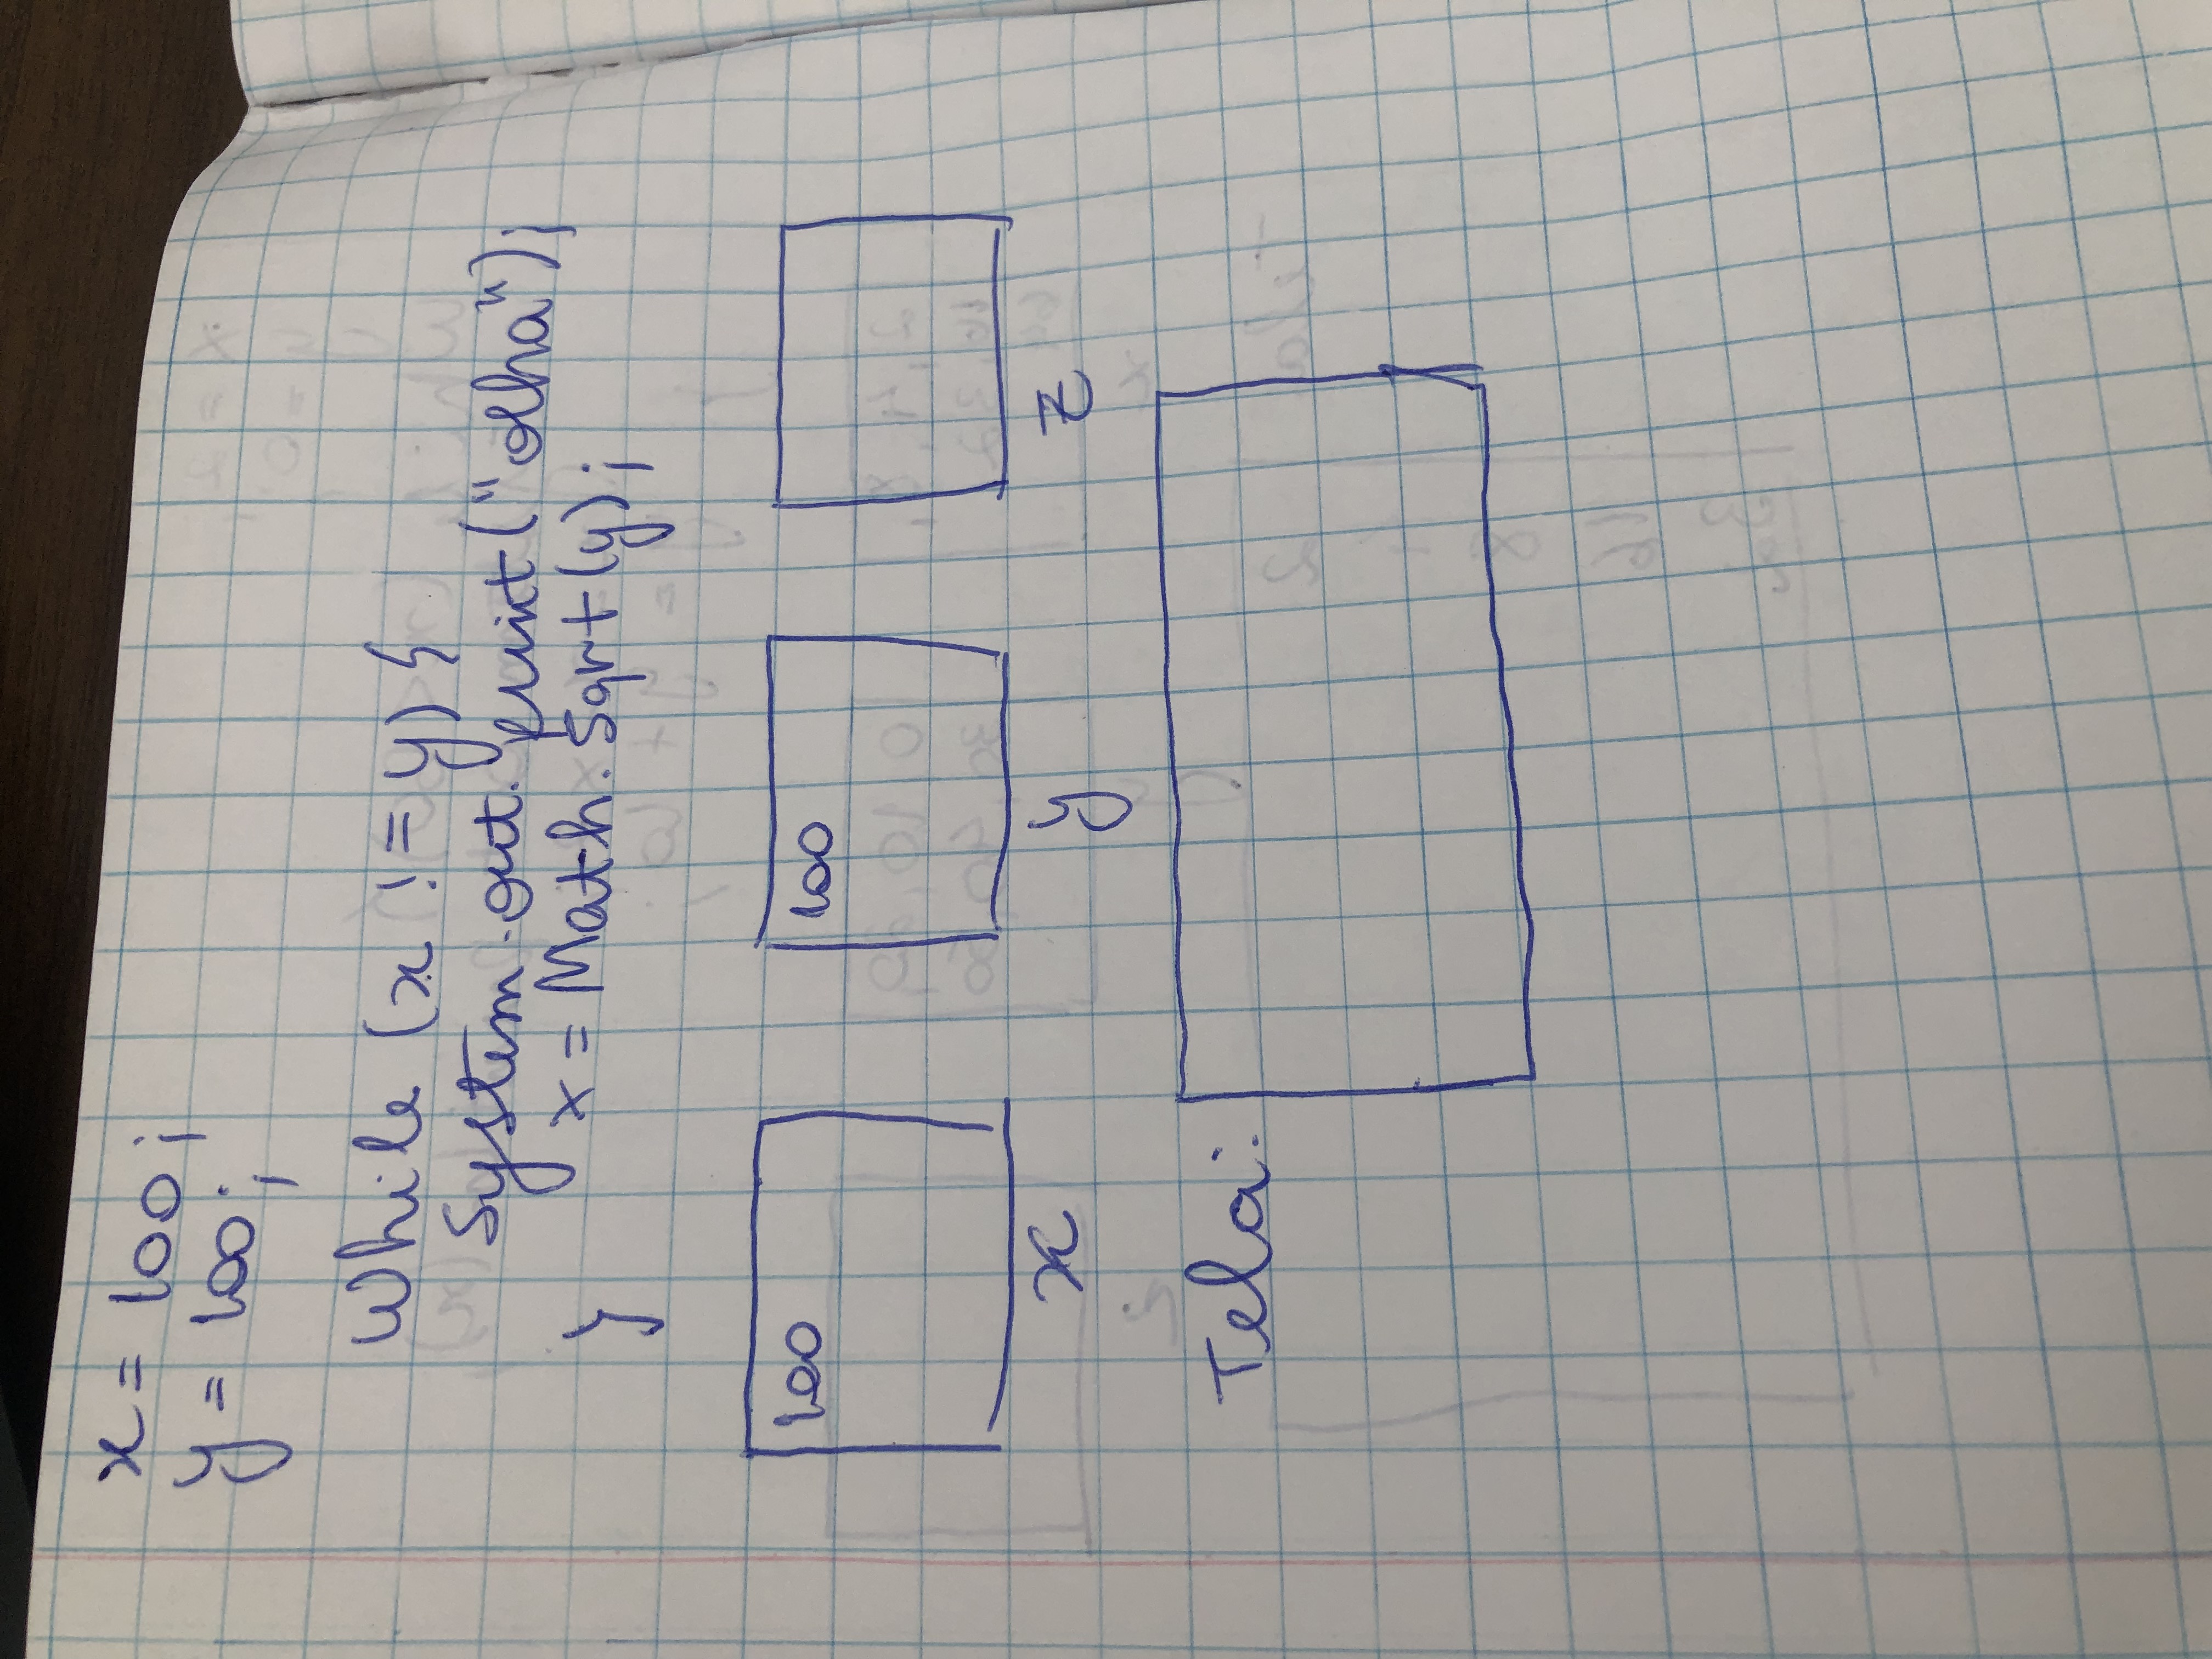 x = 100;
y = 100;
While (x != y) {
System.out.print("olha");
x = Math.sqrt(y);
}
100 100
x y z
Tela: